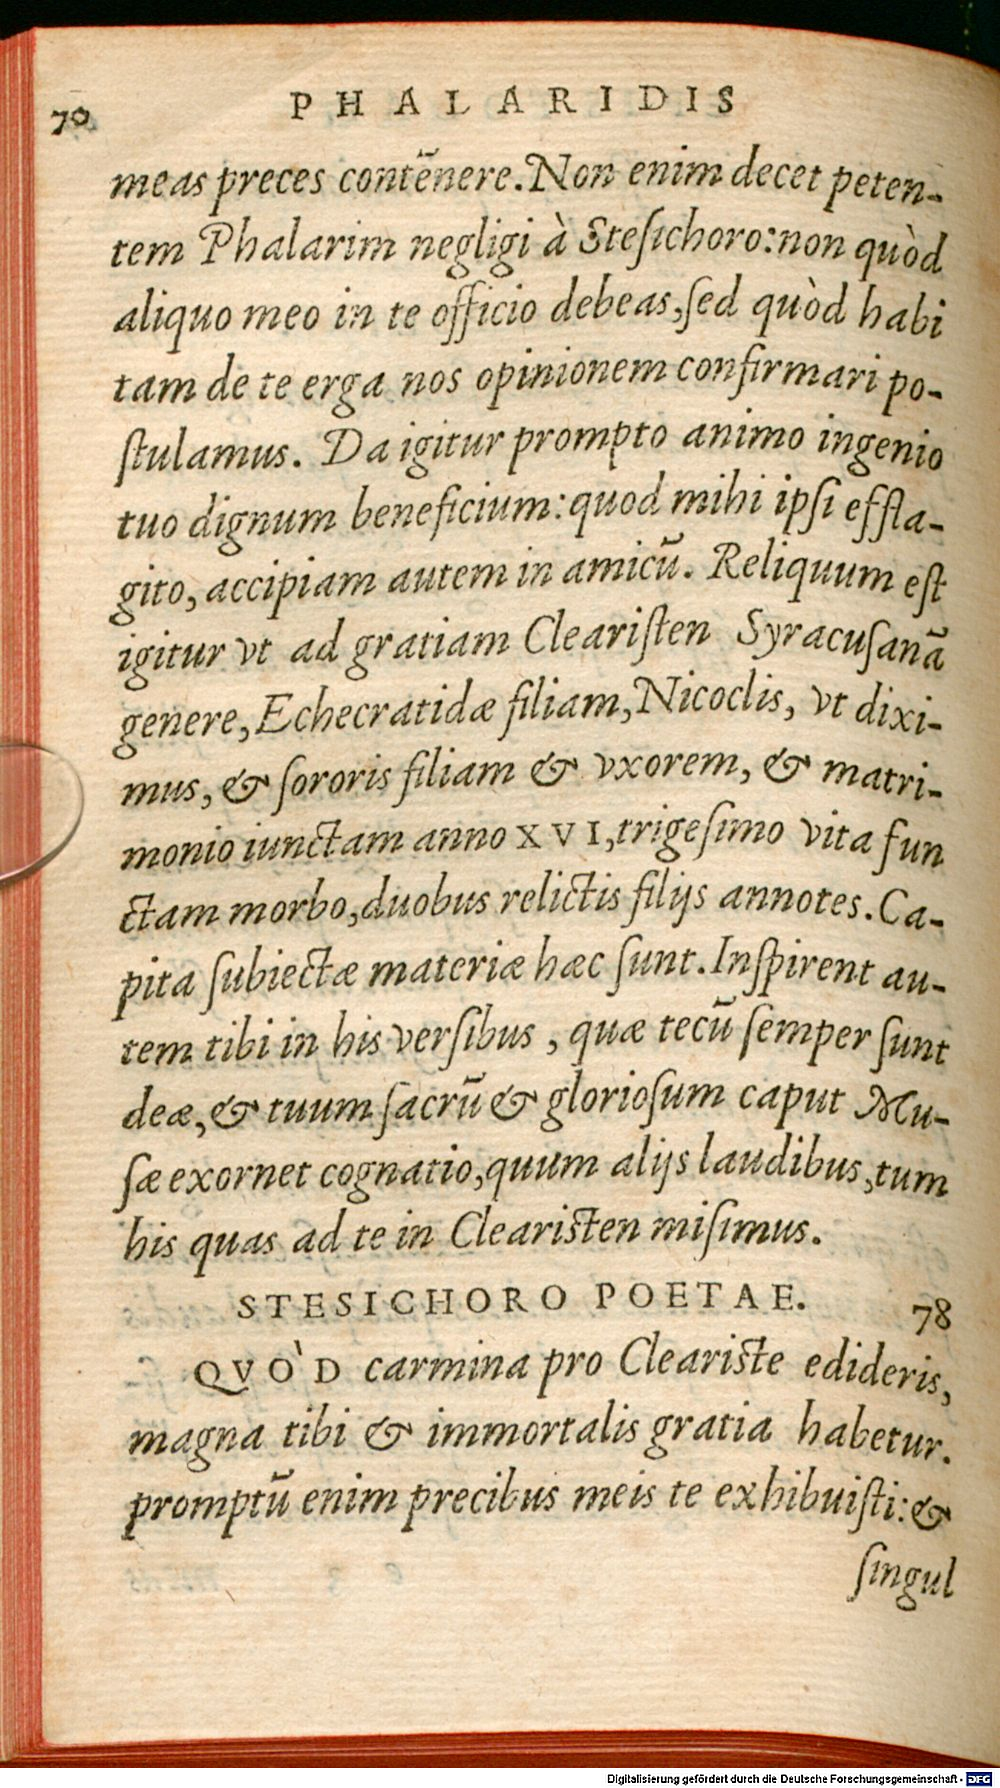 70 PHALARIDIS
meas preces contẽnere. Non enim decet peten-
tem Phalarim negligi à Steſichoro: non quòd
aliquo meo in te officio debeas, ſed quòd habi
tam de te erga nos opinionem confirmari po-
ſtulamus. Da igitur prompto animo ingenio
tuo dignum beneficium: quod mihi ipſi effla-
gito, accipiam autem in amicũ. Reliquum eſt
igitur vt ad gratiam Cleariſten Syracuſanã
genere, Echecratidæ filiam, Nicoclis, vt dixi-
mus, & ſororis filiam & vxorem, & matri-
monio iunctam anno XVI, trigeſimo vita fun
ctam morbo, duobus relictis filijs annotes. Ca-
pita ſubiectæ materiæ hæc ſunt. Inſpirent au-
tem tibi in his verſibus, quæ tecũ ſemper ſunt
deæ, & tuum ſacrũ & glorioſum caput Mu-
ſæ exornet cognatio, quum alijs laudibus, tum
his quas ad te in Cleariſten miſimus.
STESICHORO POETAE. 78
QVÒD carmina pro Cleariſte edideris,
magna tibi & immortalis gratia habetur.
promptũ enim precibus meis te exhibuiſti: &
ſingul
Digitalisierung gefördert durch die Deutsche Forschungsgemeinschaft - DFG